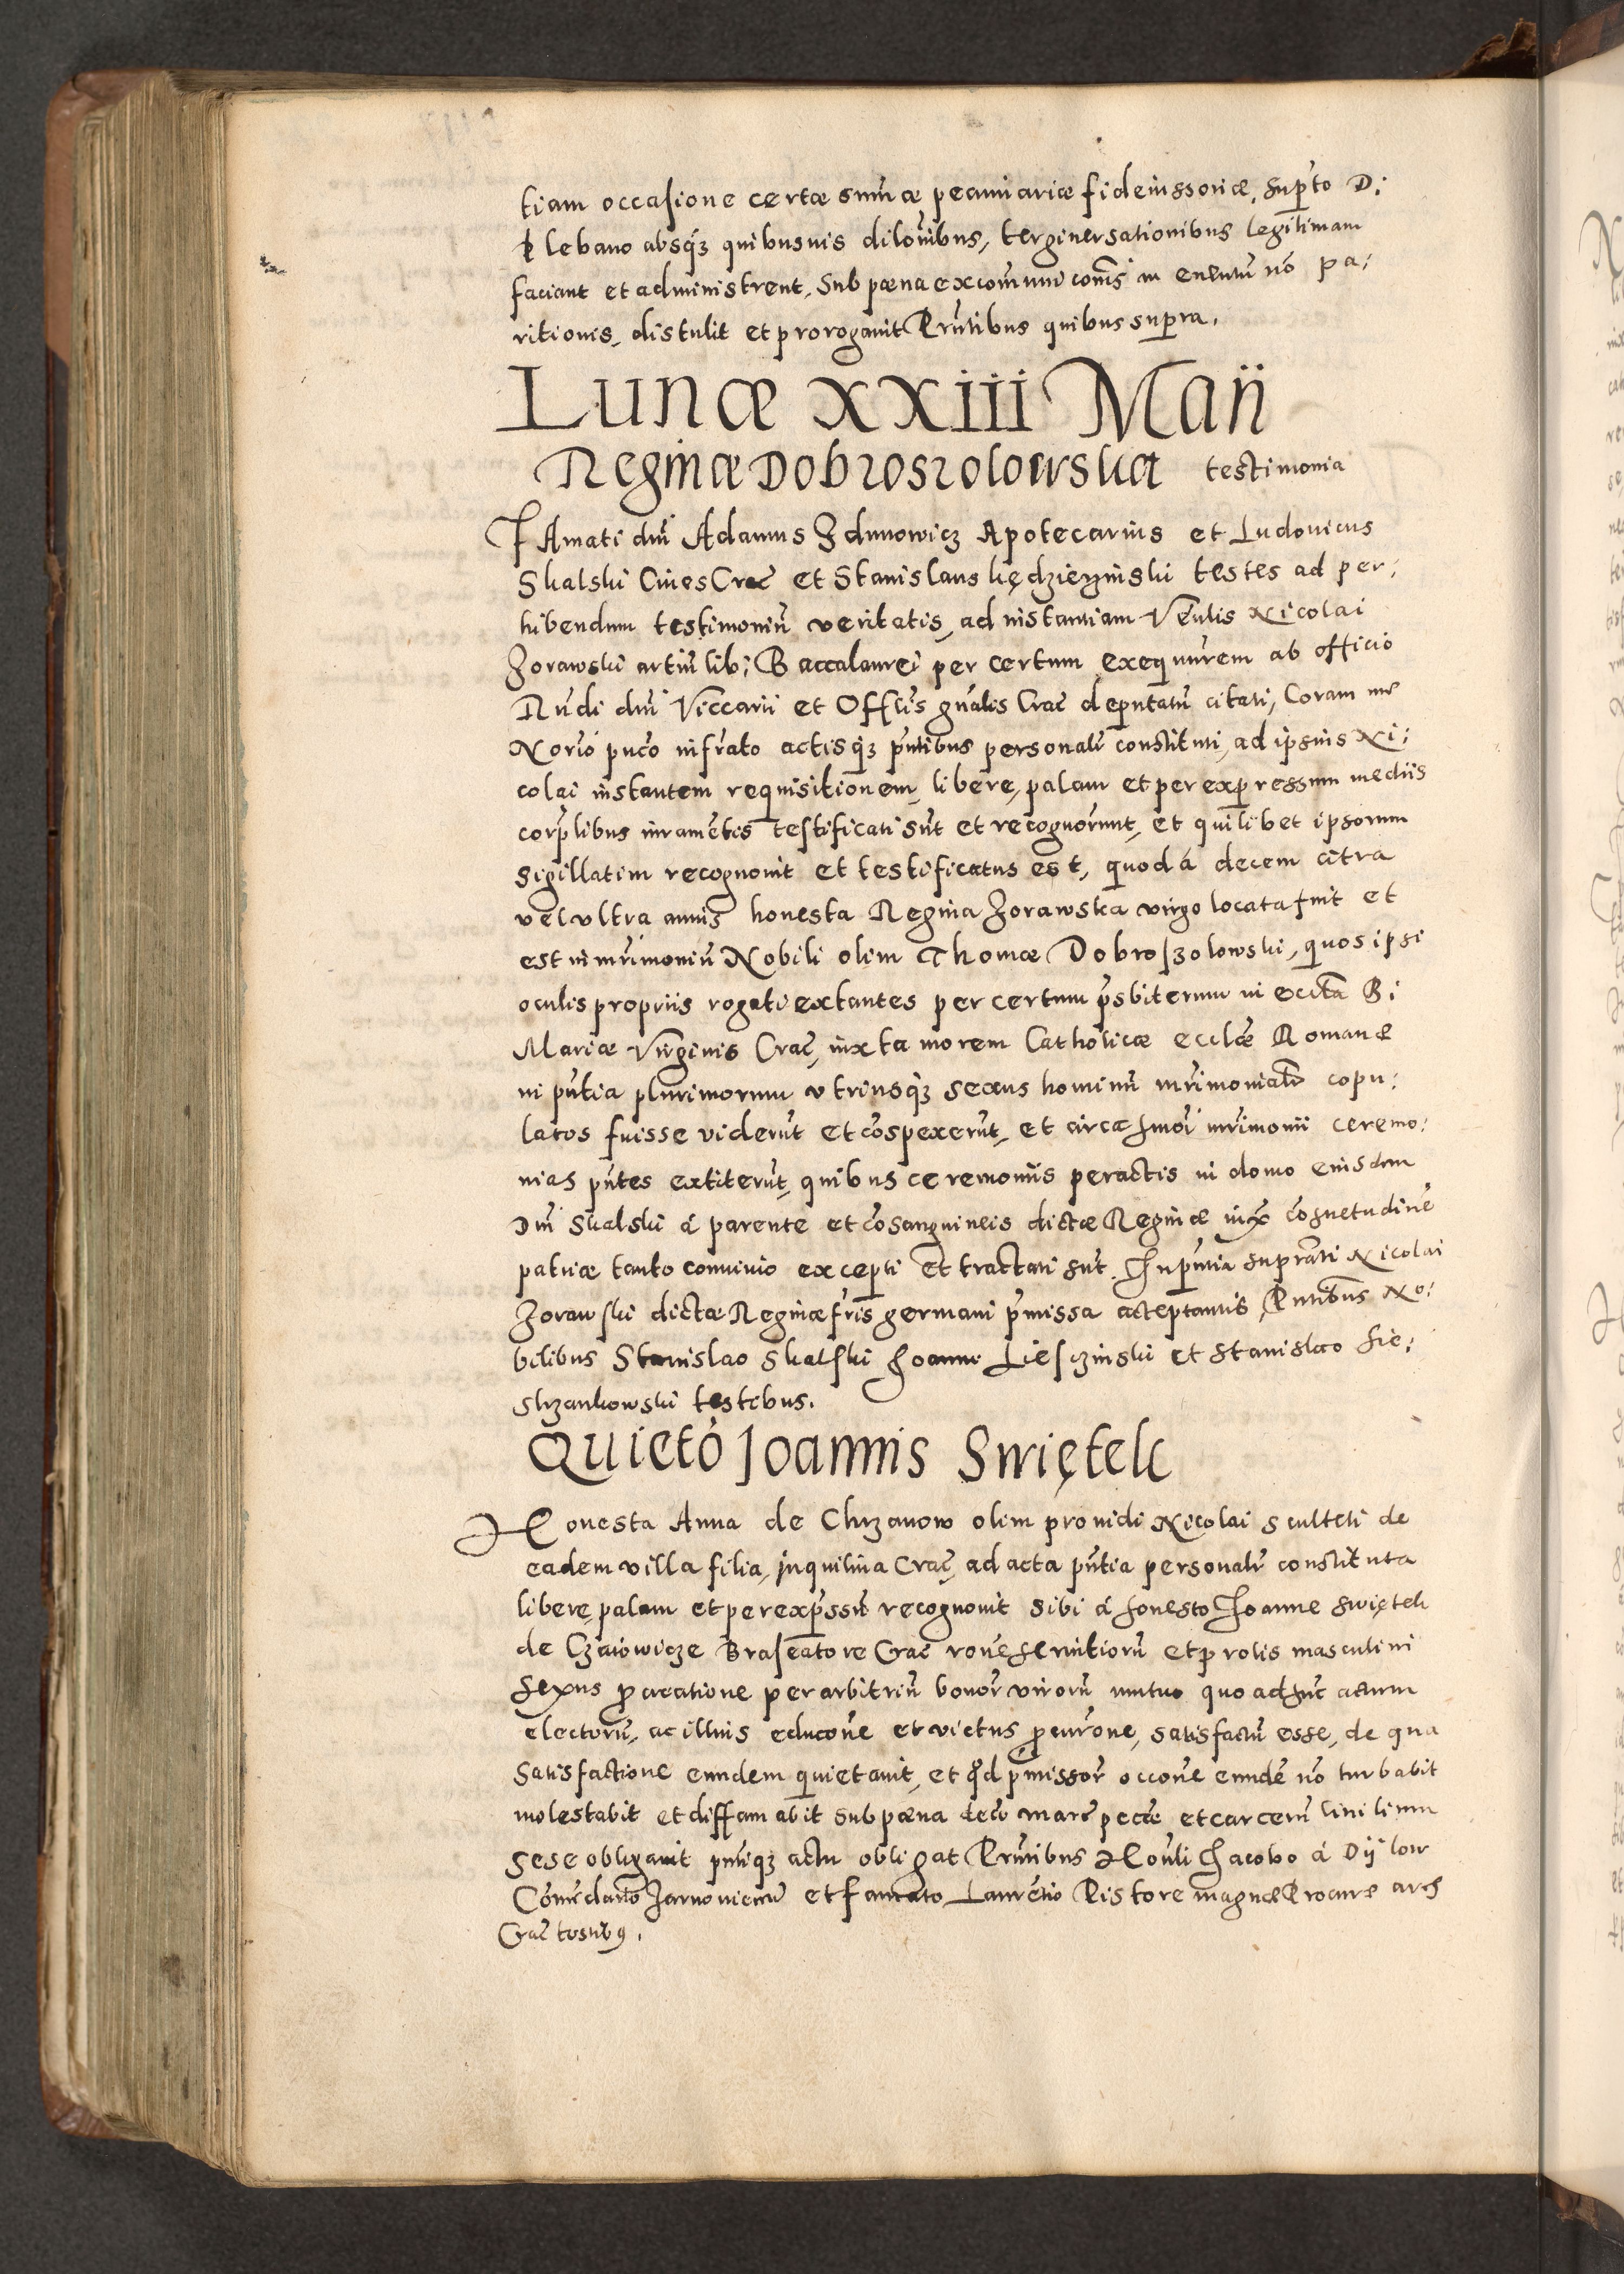 tiam occasione certæ sum̃æ pecuniariæ fideiussoriæ, sup̃to D:
Plebano absq́ꝫ quibusuis dilon̄ibus, tergiuersationibus legitimam
faciant et administrent, Sub pœna excom̃uni coñis in euentũ nõ pa:
ritionis, distulit et prorogauit Prñtibus quibus supra.
Lunæ XXIII Maii
Reginæ Dobroszolowska testimonia
FAmati dñi Adamus Zdunowicz Apotecarius et Ludouicus
Skalski Ciues Crac̃ et Stanislaus testes ad per:
hibendum testimoniũ veritatis, ad instantiam Veñlis Nicolai
Zorawski artiũ lib: Baccalaurei per certum exequũrem ab officio
Rñdi dñi Viccarii et Offlis gñalis Crac̃ deputatũ citati, Coram me
Norio puco infrãto actisq́ꝫ p̃ntibus personalr̃ constituti, ad ipsius Ni:
colai instantem requisitionem, libere, palam et per expressum mediis
corp̃libus iuramentis testificati sũt et recognorunt, et quilibet ipsorum
sigillatim recognouit et testificatus est, quod á decem citra
vel vltra annis honesta Regina Zorawska virgo locata fuit et
est in mr̃imoniũ Nobili olim Thomæ Dobroszolowski, quos ipsi
oculis propriis rogati extantes per certum p̃sbiterum in eccĩta B:
Mariæ Virginis Crac̃, iuxta morem Catholicæ eccl̃æ Romanæ
in p̃ntia plurimorum vtriusq́ꝫ sexus hominũ mr̃imonialr̃ copu:
latos fuisse viderũt et cõspexerũt, et circa hmõi mr̃imonii ceremo:
nias p̃ntes extiterũt, quibus ceremoniis peractis in domo eiusdem
Dñi Skalski á parente et cõsanguineis dictæ Reginæ iux̃ cõsuetudinẽ
patriæ tanto conuiuio excepti et tractati sũt. In p̃ntia suprãti Nicolai
Zorawski dictæ Reginæ fr̃is germani p̃missa acceptantis, Prñtibus No:
bilibus Stanislao Skalski Joanne Liesczinski et Stanislao Sie:
strzankowski testibus.
Quietõ Joannis Swiętek
HOnesta Anna de Chrzanow olim prouidi Nicolai sculteti de
eadem villa filia, inquilina Crac̃, ad acta p̃ntia personalr̃ constituta
libere, palam et per exp̃ssũ recognouit sibi á honesto Joanne Swiętek
de Czaiowicze Braseatore Crac̃ rõne seruitiorũ et prolis masculini
sexus procreatione per arbitriũ bonor̃ virorũ mutuo quo ad hũc actum
electorũ, ac illius educõne et victus procurõne, satisfactũ esse, de qua
satisfactione eundem quietauit, et qd̃ p̃missor̃ occõne eundẽ nõ turbabit
molestabit et diffamabit sub pœna decẽ marc̃ pecũæ et carcerũ
sese obligauit p̃ntiqꝫ actu obligat Prñtibus Hoñli Jacobo á
et famato Laurẽtio Pistore magnæ Procuræ arcis
Crac̃ testibꝰ.